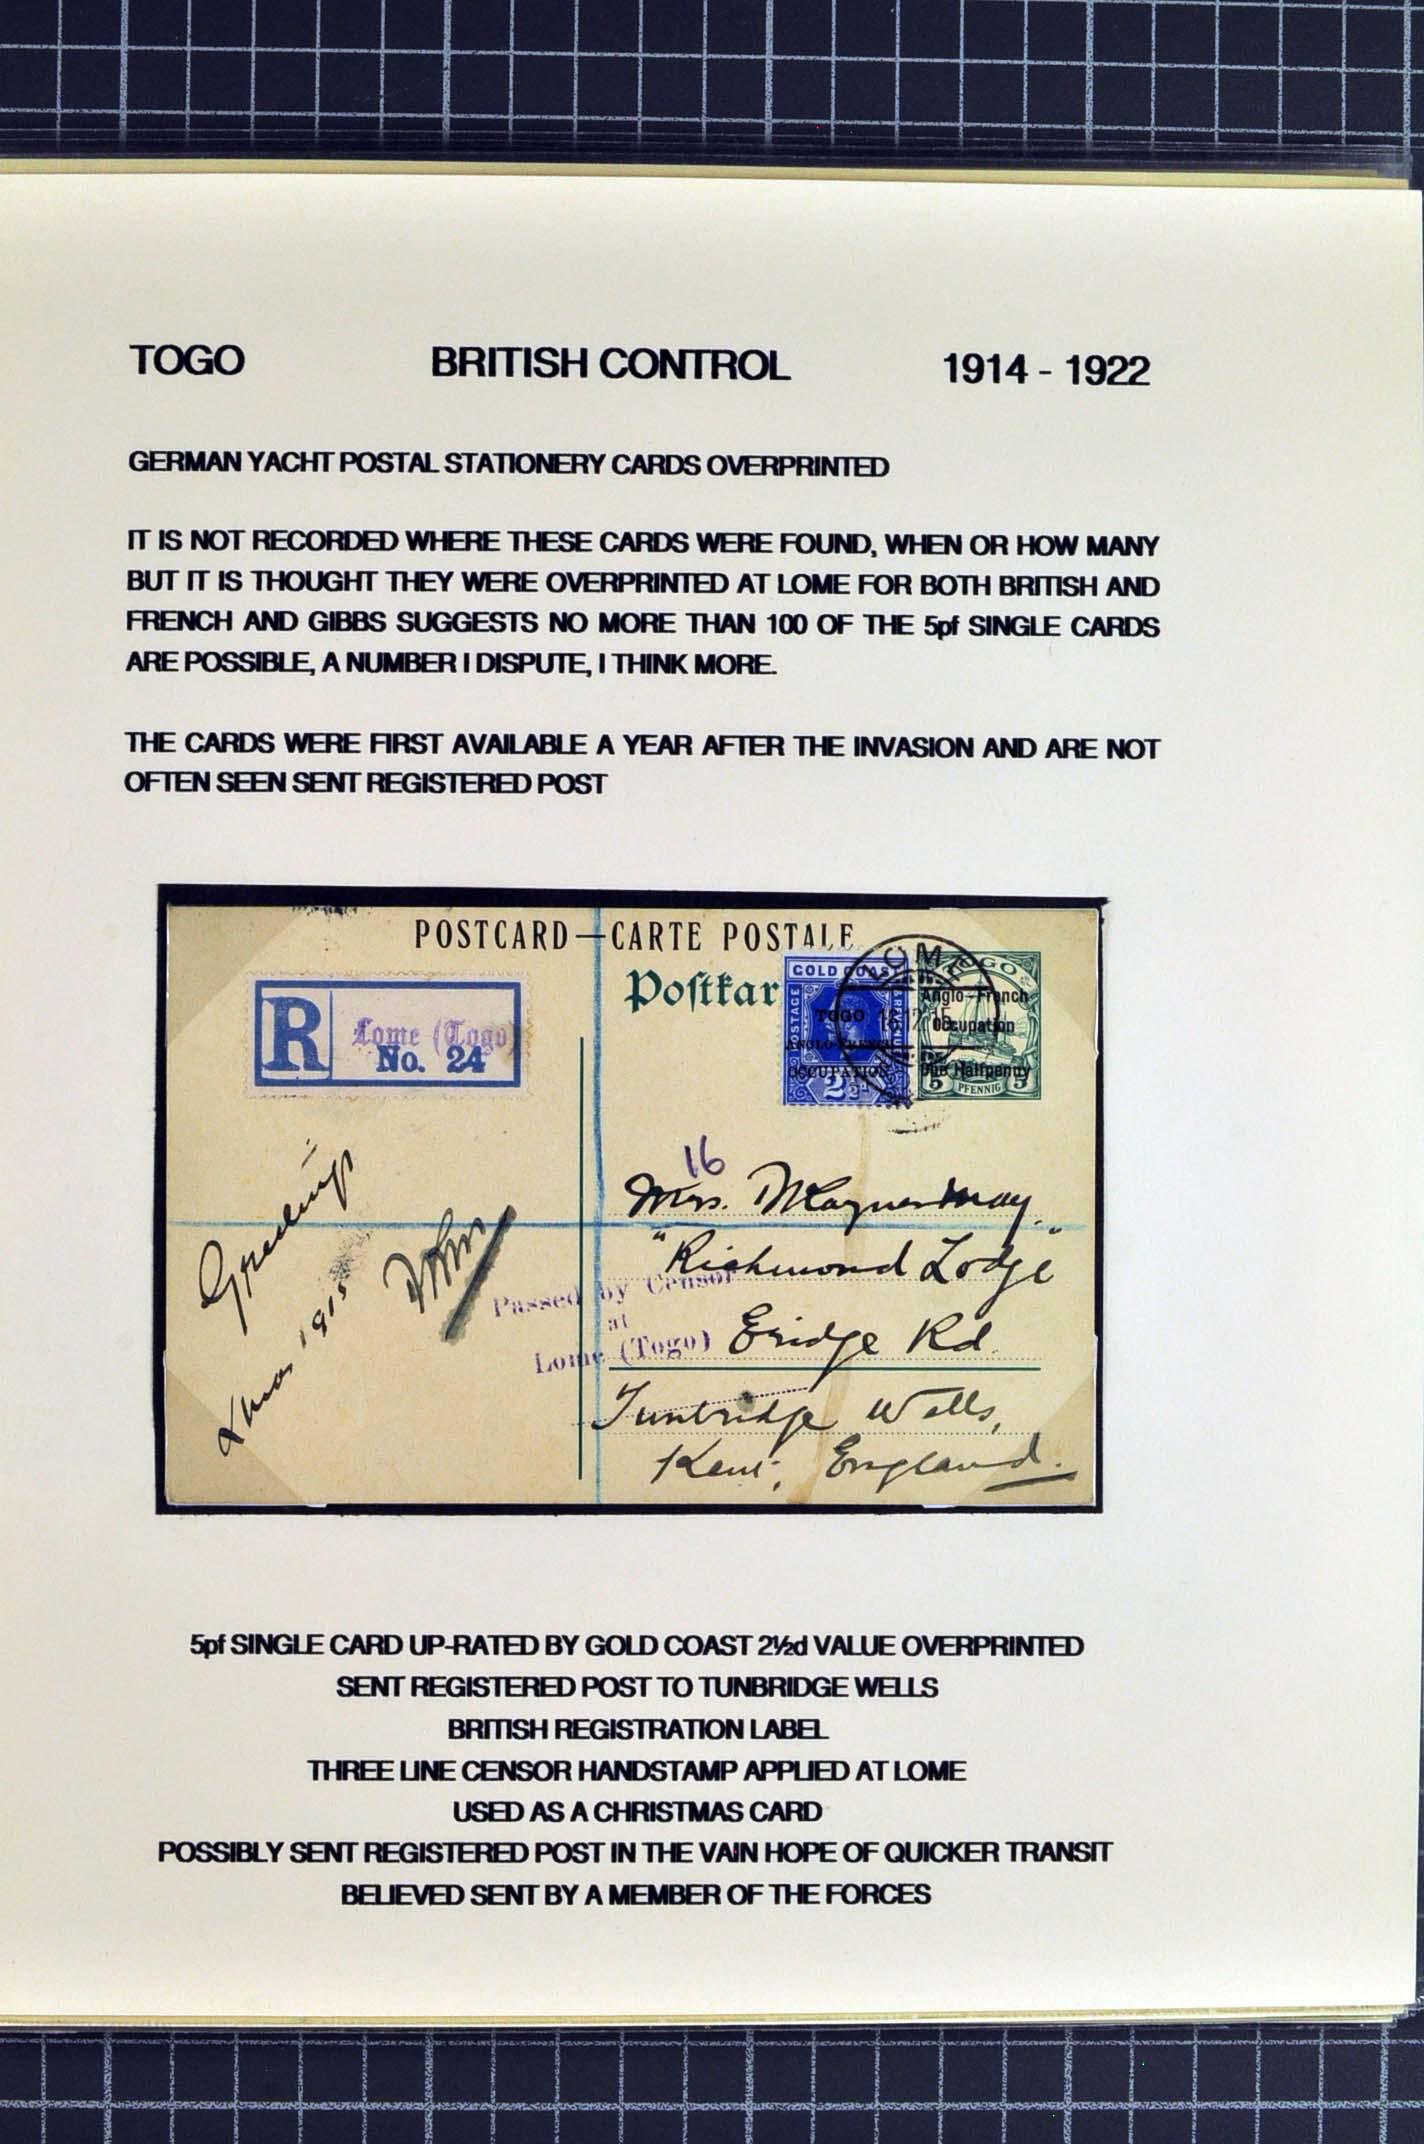 TOGO BRITISH CONTROL 1914 - 1922
GERMAN YACHT POSTAL STATIONERY CARDS OVERPRINTED
IT IS NOT RECORDED WHERE THESE CARDS WERE FOUND, WHEN OR HOW MANY
BUT IT IS THOUGHT THEY WERE OVERPRINTED AT LOME FOR BOTH BRITISH AND
FRENCH AND GIBBS SUGGESTS NO MORE THAN 100 OF THE 5pf SINGLE CARDS
ARE POSSIBLE, A NUMBER I DISPUTE, I THINK MORE.
THE CARDS WERE FIRST AVAILABLE A YEAR AFTER THE INVASION AND ARE NOT
OFTEN SEEN SENT REGISTERED POST
POSTCARD—CARTE POSTALE
Postkar
R
Lome (Togo)
No. 24
GOLD COAST
POSTAGE
TOGO
ANGLO-FRENCH
OCCUPATION
2½d
LOME
18.12.15
TOGO
Anglo-French
Occupation
One Halfpenny
5 PFENNIG 5
16
Mrs.
"Richmond Lodge"
Eridge Rd.
Tunbridge Wells,
Kent, England.
Passed by Censor
at
Lome (Togo)
Greetings
Xmas 1915
5pf SINGLE CARD UP-RATED BY GOLD COAST 2½d VALUE OVERPRINTED
SENT REGISTERED POST TO TUNBRIDGE WELLS
BRITISH REGISTRATION LABEL
THREE LINE CENSOR HANDSTAMP APPLIED AT LOME
USED AS A CHRISTMAS CARD
POSSIBLY SENT REGISTERED POST IN THE VAIN HOPE OF QUICKER TRANSIT
BELIEVED SENT BY A MEMBER OF THE FORCES